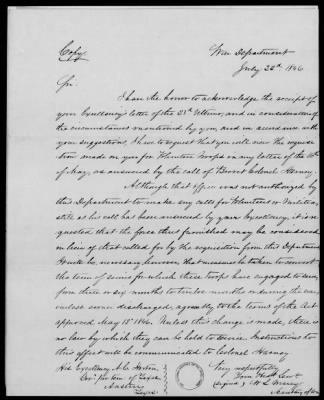 Copy
War Department
July 22d 1846
Sir,
I have the honor to acknowledge the receipt of
your Excellency's letter of the 23d Ultimo, and in consideration of
the circumstances mentioned by you, and in accordance with
your suggestions, I have to request that you will view the requisi
tion made on you for Volunteer troops in my letter of the
of May, as answered by the call of Brevet Colonel Harney.
Although that officer was not authorized by
this Department to make any call for Volunteers or Militia,
still as his call has been answered by your Excellency, it is re
quested that the force thus furnished may be considered
in lieu of that called for by the requisition from this Department
It will be necessary however that measures be taken to convert
the term of service for which these troops have engaged to serve,
from three or six months to twelve months or during the war,
unless sooner discharged, agreeably to the terms of the Act
approved May 13th 1846. Unless this change is made, there is
no law by which they can be held to service. Instructions to
this effect will be communicated to Colonel Harney
Very respectfully
Your Obt Servt
Signed W. L. Marcy
Secretary of War
His Excellency A. C. Horton,
Govr pro tem of Texas
Austin
Texas